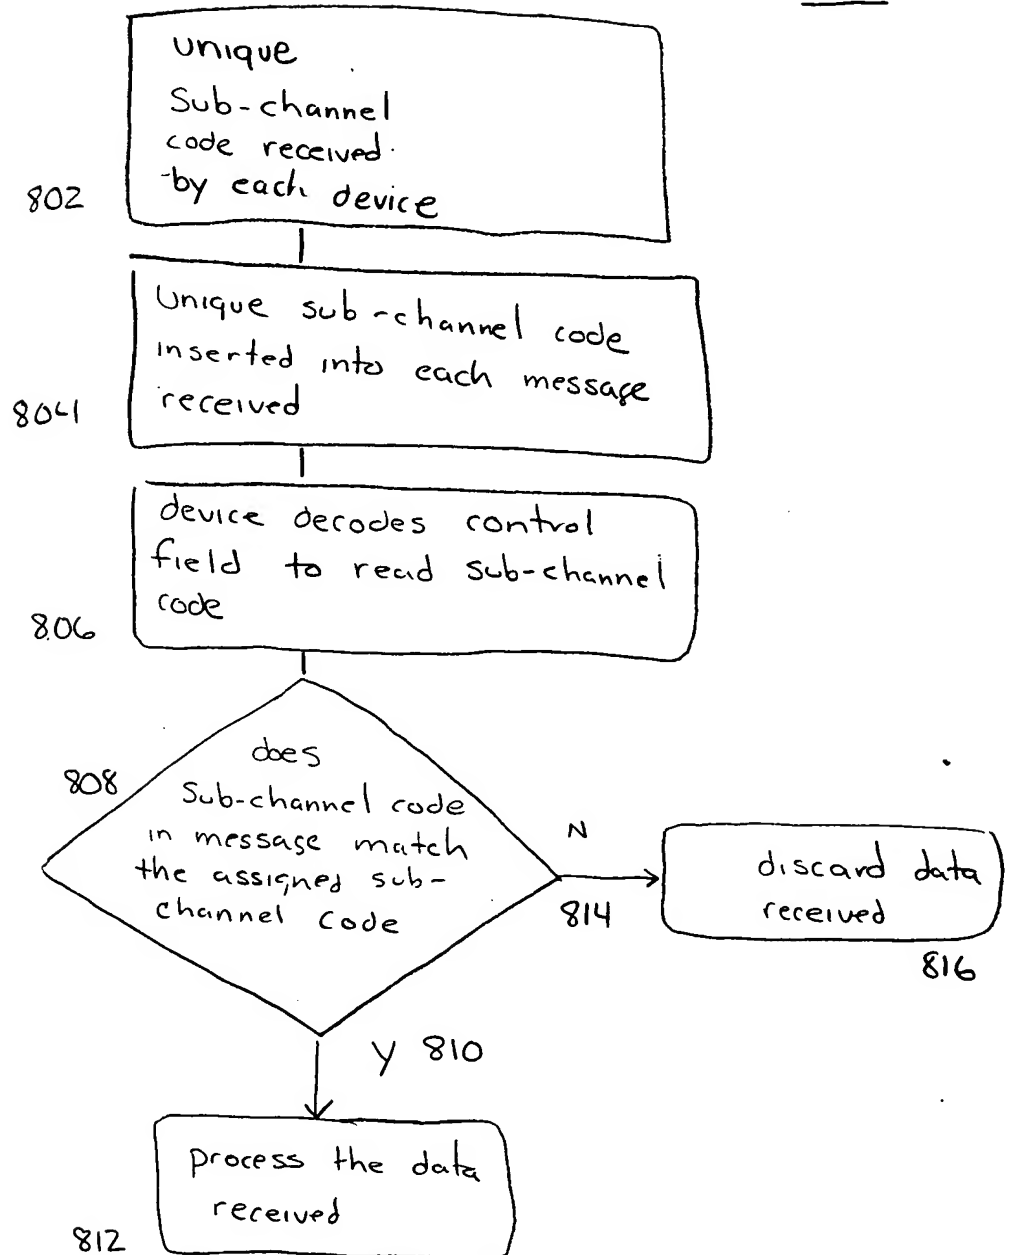 unique
Sub-channel
code received
by each device
802
Unique sub-channel code
inserted into each message
received
804
device decodes control
field to read sub-channel
code
806
does
Sub-channel code
in message match
the assigned sub-
channel code
808
N
814
discard data
received
816
Y 810
process the data
received
812